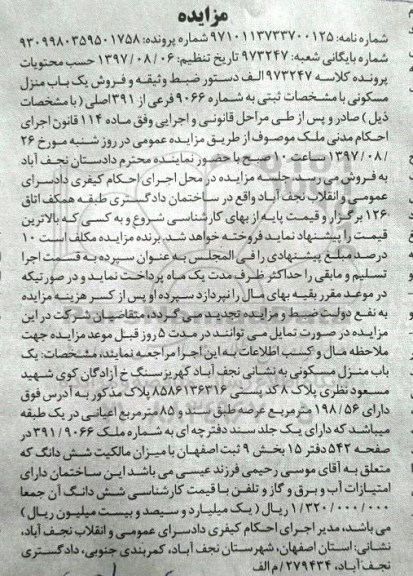 مزایده
شماره نامه: ۹۷۱۰۱۱۳۷۳۳۷۰۰۱۲۵ شماره پرونده: ۹۳۰۹۹۸۰۳۵۹۵۰۱۷۵۸
شماره بایگانی شعبه: ۹۷۳۲۴۷ تاریخ تنظیم: ۱۳۹۷/۰۸/۰۶ حسب محتویات
پرونده کلاسه ۹۷۳۲۴۷ الف دستور ضبط وثیقه و فروش یک باب منزل
مسکونی با مشخصات ثبتی به شماره ۹۰۶۶ فرعی از ۳۹۱ اصلی (با مشخصات
ذیل) صادر و پس از طی مراحل قانونی و اجرایی وفق ماده ۱۱۴ قانون اجرای
احکام مدنی ملک موصوف از طریق مزایده عمومی در روز شنبه مورخ ۲۶
/۱۳۹۷/۰۸ ساعت ۱۰ صبح با حضور نماینده محترم دادستان نجف آباد
به فروش می رسد. جلسه مزایده در محل اجرای احکام کیفری دادسرای
عمومی و انقلاب نجف آباد واقع در ساختمان دادگستری طبقه همکف اتاق
۱۲۶ برگزار و قیمت پایه از بهای کارشناسی شروع و به کسی که بالاترین
قیمت را پیشنهاد نماید فروخته خواهد شد. برنده مزایده مکلف است ۱۰
درصد مبلغ پیشنهادی را فی المجلس به عنوان سپرده به قسمت اجرا
تسلیم و مابقی را حداکثر ظرف مدت یک ماه پرداخت نماید و در صورتیکه
در موعد مقرر بقیه بهای مال را نپردازد سپرده او پس از کسر هزینه مزایده
به نفع دولت ضبط و مزایده تجدید می گردد، متقاضیان شرکت در این
مزایده در صورت تمایل می توانند در مدت ۵ روز قبل موعد مزایده جهت
ملاحظه مال و کسب اطلاعات به این اجرا مراجعه نمایند، مشخصات: یک
باب منزل مسکونی به نشانی نجف آباد کهریزسنگ خ آزادگان کوی شهید
مسعود نظری پلاک ۸ کد پستی ۸۵۸۶۱۳۶۳۱۶ پلاک مذکور به آدرس فوق
دارای ۱۹۸/۵۶ مترمربع عرصه طبق سند و ۸۵ مترمربع اعیانی در یک طبقه
میباشد که دارای یک جلد سند دفترچه ای به شماره ملک ۳۹۱/۹۰۶۶ در
صفحه ۵۴۲ دفتر ۱۵ بخش ۹ ثبت اصفهان با میزان مالکیت شش دانگ که
متعلق به آقای موسی رحیمی فرزند عیسی می باشد این ساختمان دارای
امتیازات آب و برق و گاز و تلفن با قیمت کارشناسی شش دانگ آن جمعا
۱/۳۲۰/۰۰۰/۰۰۰ ریال (یک میلیارد و سیصد و بیست میلیون ریال)
می باشد، مدیر اجرای احکام کیفری دادسرای عمومی و انقلاب نجف آباد،
نشانی: استان اصفهان، شهرستان نجف آباد، کمربندی جنوبی، دادگستری
نجف آباد، ۲۷۹۴۳۴/م الف